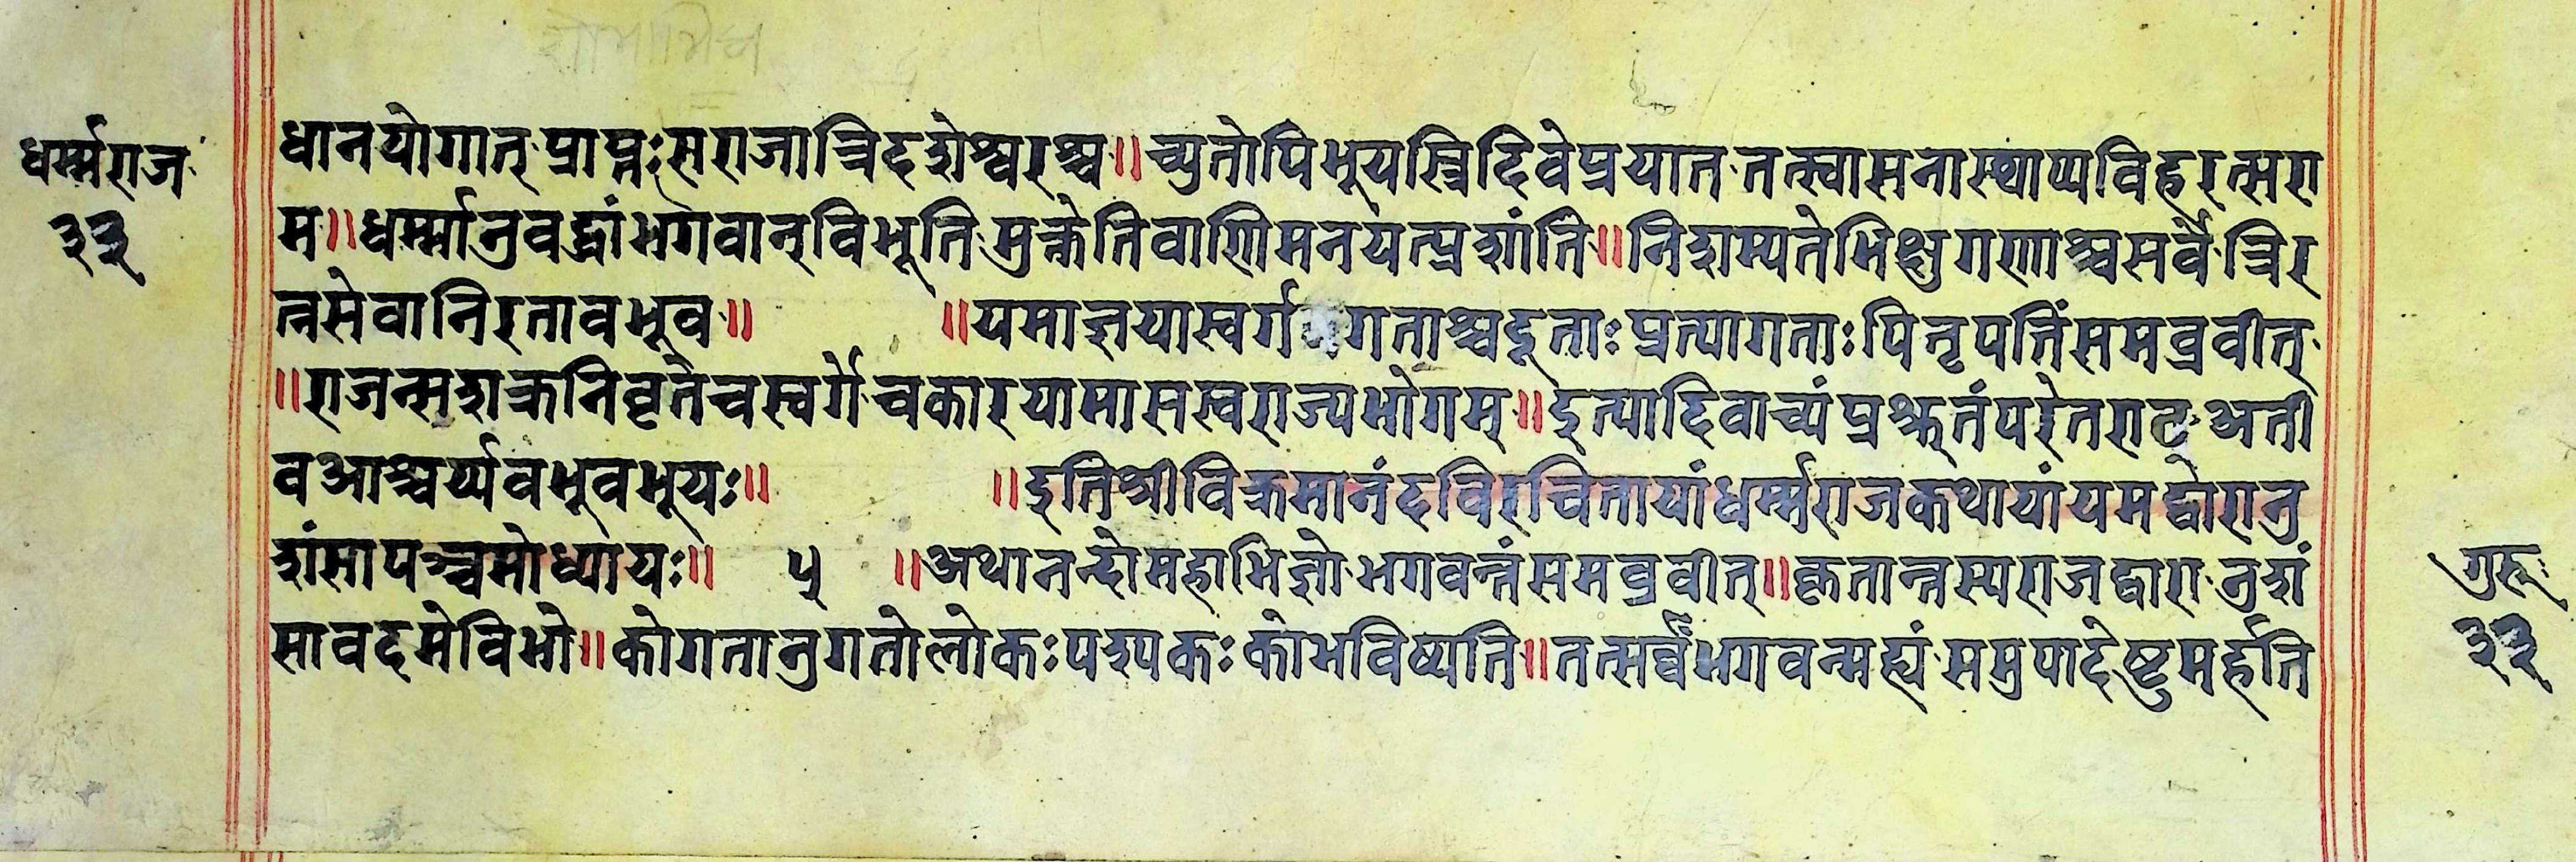 धर्म्मराज
३३
धानयोगात् प्राप्तःसराजात्रिदशेश्वरश्च॥च्युतोपिभूयस्त्रिदिवेप्रयात तत्स्वासनास्थाप्यविहरत्सरा
म॥धर्म्मानुवद्धांभगवान्विभूति मुक्तेतिवाणिमनयत्प्रशांति॥निशम्यतेभिक्षुगणाश्चसर्वे त्रिर
त्नसेवानिरतावभूव॥ ॥यमाज्ञयास्वर्ग गताश्चदूताःप्रत्यागताःपितृपतिंसमब्रवीत्
॥राजन्सशक्रनिवृतेचस्वर्गे चकारयामासस्वराज्यभोगम्॥इत्यादिवाच्यं प्रश्रुतंपरेतराट् अती
वआश्चर्य्यवभूवभूयः॥ ॥इतिश्रीविक्रमानंदविरचितायांधर्म्मराजकथायांयमद्वारानु
शंसापञ्चमोध्यायः॥ ५ ॥अथानन्दोमहाभिज्ञो भगवन्तंसमब्रवीत्॥कृतान्तस्यराजद्वारा नुशं
सावदमेविभो॥कोगतानुगतोलोकःपश्पकःकोभविष्यति॥तत्सर्व्वंभगवन्मह्यं समुपादेष्टुमर्हति
गुरू
३३